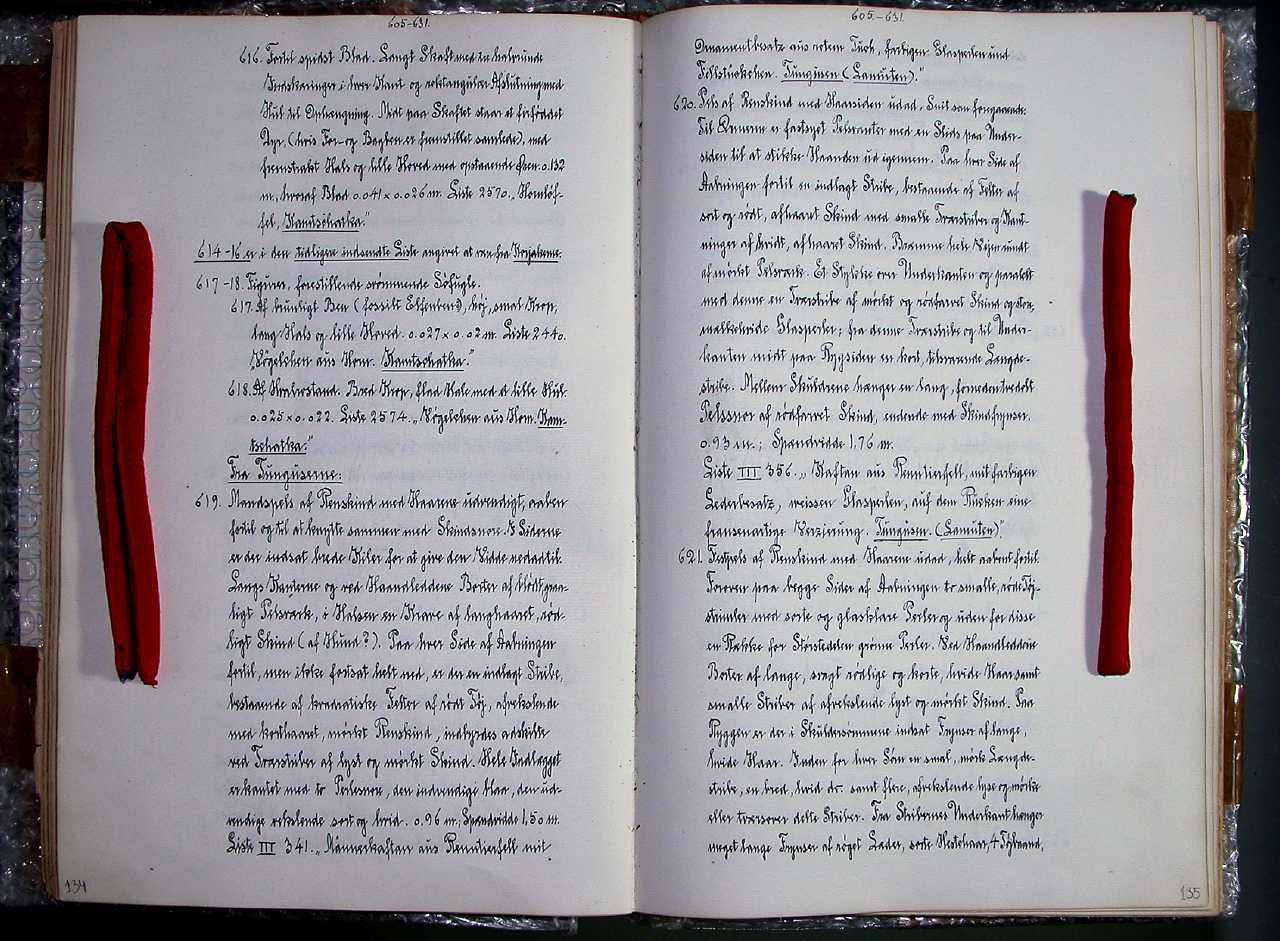 605-631.
616. Fortil spidst Blad. Langt Skaft med to halvrunde
Indskæringer i hver Kant og rektangulær Afslutning med
Hul til Ophængning. Midt paa Skaftet staar et firføddet
Dyr, (hvis For- og Bagben er fremstillet samlede), med
fremstrakt Hals og lille Hoved med opstaaende Øren. 0.132
m, hvoraf Blad 0.041 x 0.026 m. Liste 2570. „Hornlöf-
fel, Kamtschatka."
614-16 er i den tidligere indsendte Liste angivet at være fra Korjakerne.
617-18. Figurer, forestillende svømmende Søfugle.
617. Af kunligt Ben (fossilt Elfenben?), høj, smal Krop,
lang Hals og lille Hoved. 0.027 x 0.02 m. Liste 2440.
„Vögelchen aus Horn. Kamtschatka."
618. Af Hvalrostand. Bred Krop, flad Hale med et lille Hul.
0.025 x 0.022. Liste 2574. „Vögelchen aus Horn. Kam-
tschatka."
Fra Tunguserne:
619. Mandspels af Renskind med Haarene udvendigt, aaben
fortil og til at knytte sammen med Skindsnore. I Siderne
er der indsat brede Kiler for at give den Vidde nedadtil.
Langs Kanterne og ved Haandleddene Borter af blødt, graa-
ligt Pelsværk, i Halsen en Krave af langhaaret, rød-
ligt Skind (af Hund?). Paa hver Side af Aabningen
fortil, men ikke fortsat helt ned, er der en indlagt Stribe,
bestaaende af kvadratiske Felter af rødt Tøj, afvekslende
med korthaaret, mørkt Renskind, indbyrdes adskilte
ved Tværstriber af lyst og mørkt Skind. Hele Indlægget
er kantet med to Perlesnore, den indvendige blaa, den ud-
vendige vekslende sort og hvid. 0.96 m.; Spændvidde 1,50 m.
Liste III 341. „Männerkaftan aus Renntierfell mit
134
605.-631.
Ornamentbesatz aus rotem Tuch, farbigen Glasperlen und
Fellstückchen. Tungusen (Lamuten)."
620. Pels af Renskind med Haarsiden udad, Snit som foregaaende.
Til Ærmerne er fastsyet Pelsvanter med en Slids paa Under-
siden til at stikke Haanden ud igennem. Paa hver Side af
Aabningen fortil en indlagt Stribe, bestaaende af Felter af
sort og rødt, afhaaret Skind med smalle Tværstriber og Kant-
ninger af hvidt, afhaaret Skind. Bræmme hele Vejen rundt
af mørkt Pelsværk. Et Stykke over Underkanten og parallelt
med denne en Tværstribe af mørkt og rødfarvet Skind og store,
mælkehvide Glasperler; fra denne Tværstribe og til Under-
kanten midt paa Rygsiden en kort, tilsvarende Længde-
stribe. Mellem Skuldrene hænger en lang, forneden tvedelt
Pelssnor af rødfarvet Skind, endende med Skindfrynser.
0.93 m.; Spændvidde 1,76 m.
Liste III 356. „Kaftan aus Renntierfell, mit farbigen
Lederbesatz, weissen Glasperlen, auf dem Rücken eine
fransenartige Verzierung. Tungusen. (Lamuten)."
621. Festpels af Renskind med Haarene udad, helt aaben fortil.
Forover paa begge Sider af Aabningen to smalle, røde Tøj-
strimler med sorte og glasklare Perler og uden for disse
en Række for Størstedelen grønne Perler. Ved Haandleddene
Borter af lange, svagt rødlige og korte, hvide Haar samt
smalle Striber af afvekslende lyst og mørkt Skind. Paa
Ryggen er der i Skuldersømmene indsat Frynser af lange,
hvide Haar. Inden for hver Søm en smal, mørk Længde-
stribe, en bred, hvid do. samt flere, afvekslende lyse og mørke
eller tværsover delte Striber. Fra Stribernes Underkant hænger
meget lange Frynser af røget Læder, sorte Hestehaar, 4 Tøjbaand,
135